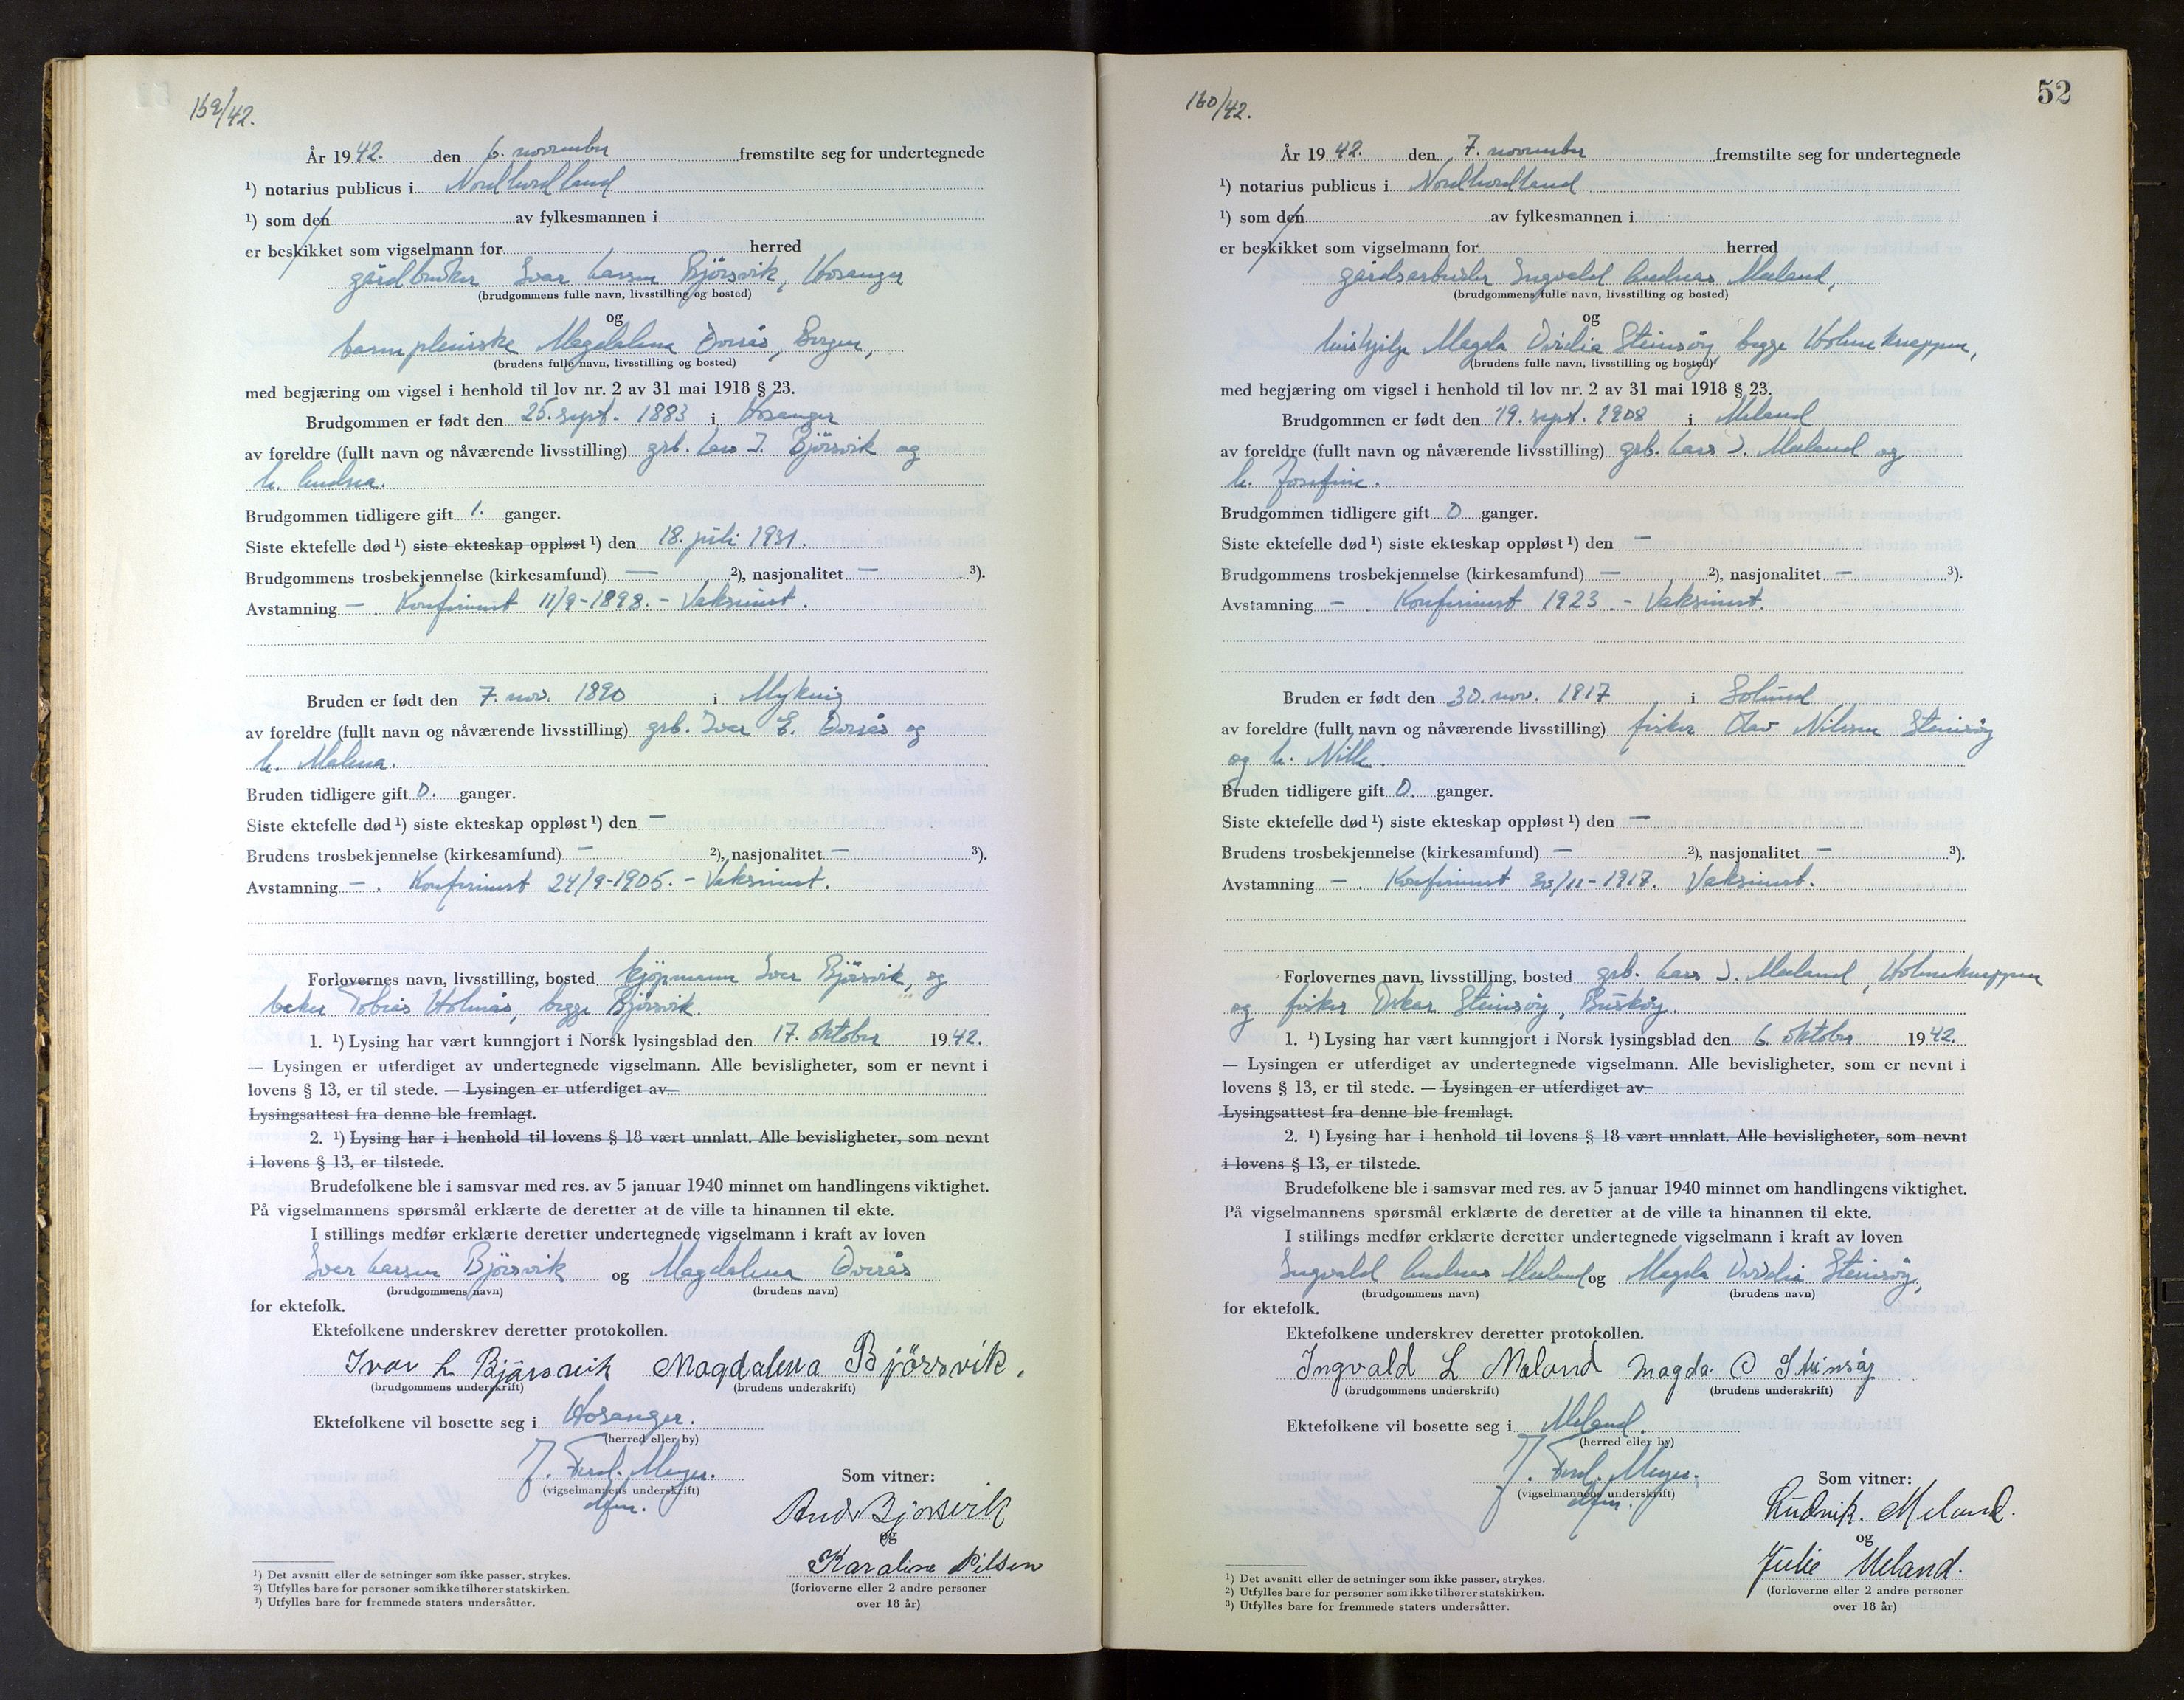 159/42.
År 1942. den 6. november fremstilte seg for undertegnede
¹) notarius publicus i Nordhordland
¹) som den av fylkesmannen i
er beskikket som vigselmann for herred
gårdbruker Ivar Larsen Bjørsvik, Hosanger
(brudgommens fulle navn, livsstilling og bosted)
og
barnepleierske Magdalena Dorsås, Bergen,
(brudens fulle navn, livsstilling og bosted)
med begjæring om vigsel i henhold til lov nr. 2 av 31 mai 1918 § 23.
Brudgommen er født den 25. sept. 1883 i Hosanger
av foreldre (fullt navn og nåværende livsstilling) grb. Lars I. Bjørsvik og
h. Andrea.
Brudgommen tidligere gift 1. ganger.
Siste ektefelle død ¹) siste ekteskap oppløst ¹) den 18. juli 1931.
Brudgommens trosbekjennelse (kirkesamfund) — ²), nasjonalitet — ³).
Avstamning — . Konfirmert 11/9-1898. - Vaksinert.
Bruden er født den 7. nov. 1890 i Myking
av foreldre (fullt navn og nåværende livsstilling) grb. Iver E. Dorsås og
h. Malena.
Bruden tidligere gift 0. ganger.
Siste ektefelle død ¹) siste ekteskap oppløst ¹) den —
Brudens trosbekjennelse (kirkesamfund) — ²), nasjonalitet — ³).
Avstamning — . Konfirmert 24/9-1905. - Vaksinert.
Forlovernes navn, livsstilling, bosted kjøpmann Iver Bjørsvik, og
baker Tobias Holmås, begge Bjørsvik.
1. ¹) Lysing har vært kunngjort i Norsk lysingsblad den 17. oktober 1942.
— Lysingen er utferdiget av undertegnede vigselmann. Alle bevisligheter, som er nevnt i
lovens § 13, er til stede. — Lysingen er utferdiget av
Lysingsattest fra denne ble fremlagt.
2. ¹) Lysing har i henhold til lovens § 18 vært unnlatt. Alle bevisligheter, som nevnt
i lovens § 13, er tilstede.
Brudefolkene ble i samsvar med res. av 5 januar 1940 minnet om handlingens viktighet.
På vigselmannens spørsmål erklærte de deretter at de ville ta hinannen til ekte.
I stillings medfør erklærte deretter undertegnede vigselmann i kraft av loven
Ivar Larsen Bjørsvik og Magdalena Dorsås
(brudgommens navn) (brudens navn)
for ektefolk.
Ektefolkene underskrev deretter protokollen.
Ivar L Bjørsvik Magdalena Bjørsvik.
(brudgommens underskrift) (brudens underskrift)
Ektefolkene vil bosette seg i Hosanger.
(herred eller by)
J. Ferd. Meyer.
(vigselmannens underskrift)
dfm.
Som vitner:
And Bjørsvik
og
Karoline Nilsen
(forloverne eller 2 andre personer
over 18 år)
¹) Det avsnitt eller de setninger som ikke passer, strykes.
²) Utfylles bare for personer som ikke tilhører statskirken.
³) Utfylles bare for fremmede staters undersåtter.
52
160/42.
År 1942. den 7. november fremstilte seg for undertegnede
¹) notarius publicus i Nordhordland
¹) som den av fylkesmannen i
er beskikket som vigselmann for herred
gårdsarbeider Ingvald Andreas Meland,
(brudgommens fulle navn, livsstilling og bosted)
og
hushjelp Magda Ovidia Steinsøy, begge Holmeknappen,
(brudens fulle navn, livsstilling og bosted)
med begjæring om vigsel i henhold til lov nr. 2 av 31 mai 1918 § 23.
Brudgommen er født den 19. sept. 1908 i Meland
av foreldre (fullt navn og nåværende livsstilling) grb. Lars I. Meland og
h. Josefine.
Brudgommen tidligere gift 0 ganger.
Siste ektefelle død ¹) siste ekteskap oppløst ¹) den —
Brudgommens trosbekjennelse (kirkesamfund) — ²), nasjonalitet — ³).
Avstamning — . Konfirmert 1923. - Vaksinert.
Bruden er født den 30. nov. 1917 i Solund
av foreldre (fullt navn og nåværende livsstilling) fisker Olav Nilssen Steinsøy
og h. Nille.
Bruden tidligere gift 0. ganger.
Siste ektefelle død ¹) siste ekteskap oppløst ¹) den —
Brudens trosbekjennelse (kirkesamfund) — ²), nasjonalitet — ³).
Avstamning — . Konfirmert 30/11-1917. Vaksinert.
Forlovernes navn, livsstilling, bosted grb. Lars I. Meland, Holmeknappen
og fisker Oskar Steinsøy, Buskøy.
1. ¹) Lysing har vært kunngjort i Norsk lysingsblad den 6. oktober 1942.
— Lysingen er utferdiget av undertegnede vigselmann. Alle bevisligheter, som er nevnt i
lovens § 13, er til stede. — Lysingen er utferdiget av
Lysingsattest fra denne ble fremlagt.
2. ¹) Lysing har i henhold til lovens § 18 vært unnlatt. Alle bevisligheter, som nevnt
i lovens § 13, er tilstede.
Brudefolkene ble i samsvar med res. av 5 januar 1940 minnet om handlingens viktighet.
På vigselmannens spørsmål erklærte de deretter at de ville ta hinannen til ekte.
I stillings medfør erklærte deretter undertegnede vigselmann i kraft av loven
Ingvald Andreas Meland og Magda Ovidia Steinsøy,
(brudgommens navn) (brudens navn)
for ektefolk.
Ektefolkene underskrev deretter protokollen.
Ingvald L Meland Magda O Steinsøy
(brudgommens underskrift) (brudens underskrift)
Ektefolkene vil bosette seg i Meland.
(herred eller by)
J. Ferd. Meyer.
(vigselmannens underskrift)
dfm.
Som vitner:
Ludvik. Meland.
og
Julie Meland.
(forloverne eller 2 andre personer
over 18 år)
¹) Det avsnitt eller de setninger som ikke passer, strykes.
²) Utfylles bare for personer som ikke tilhører statskirken.
³) Utfylles bare for fremmede staters undersåtter.